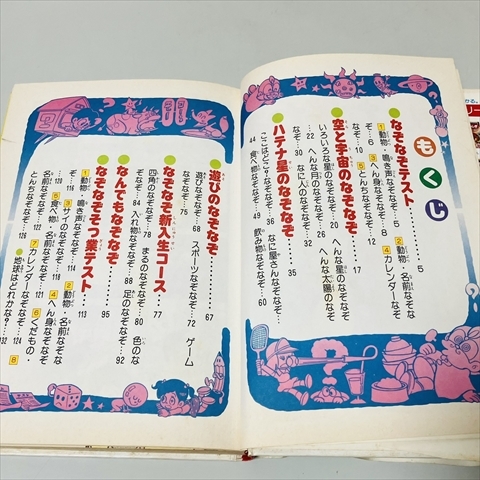 もくじ
●なぞなぞテスト……5
1動物・鳴き声なぞなぞ…5 2動物・名前なぞな
ぞ…6 3へん身なぞなぞ…8 4カレンダーなぞ
なぞ…10 5とんちなぞなぞ…12
●空と宇宙のなぞなぞ……17
いろいろな星のなぞなぞ…20 へんな星のなぞなぞ
…22 へんな月のなぞなぞ…26 へんな太陽のなぞ
なぞ…30 なに人のなぞなぞ…32
●ハテナ星のなぞなぞ……35
ここはどこ?なぞなぞ…36 なに屋さんなぞなぞ…
44 食べ物なぞなぞ…49 飲み物なぞなぞ…60
●遊びのなぞなぞ……67
遊びなぞなぞ…68 スポーツなぞなぞ…72 ゲーム
なぞなぞ…75
●なぞなぞ新入生コース……77
四角のなぞなぞ…78 まるのなぞなぞ…80 色のな
ぞなぞ…84 入れ物なぞなぞ…88 足のなぞなぞ…92
●なんでもなぞなぞ……95
●なぞなぞそつ業テスト……113
1動物・鳴き声なぞなぞ…114 2動物・名前なぞな
ぞ…116 3サイのなぞなぞ…118 4へん身なぞなぞ
…120 5食べ物・名前なぞなぞ…121 6くだもの・
名前なぞなぞ…121 7カレンダーなぞなぞ…124 8
とんちなぞなぞ…128 ●地球はどれかな?…132